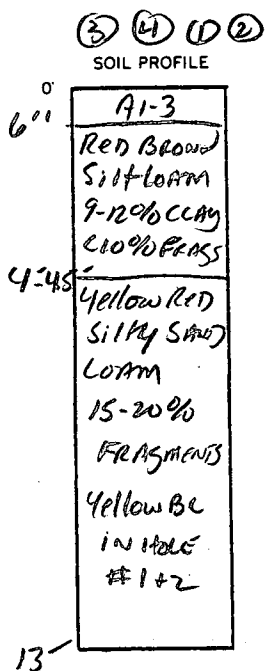 ③ ④ ① ②
SOIL PROFILE
0'
A1-3
6"
Red Brown
Silt Loam
9-12% CLAY
<10% FRAGS
4'-4.5'
Yellow Red
Silty Sand
Loam
15-20%
FRAGMENTS
Yellow Bc
in Hole
#1+2
13'